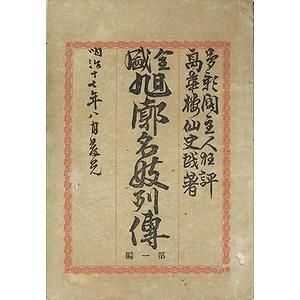 夢影閣主人狂評
萬華楼仙史戯著
全盛旭廓名妓列傳
第一編
明治十七年八月発兌